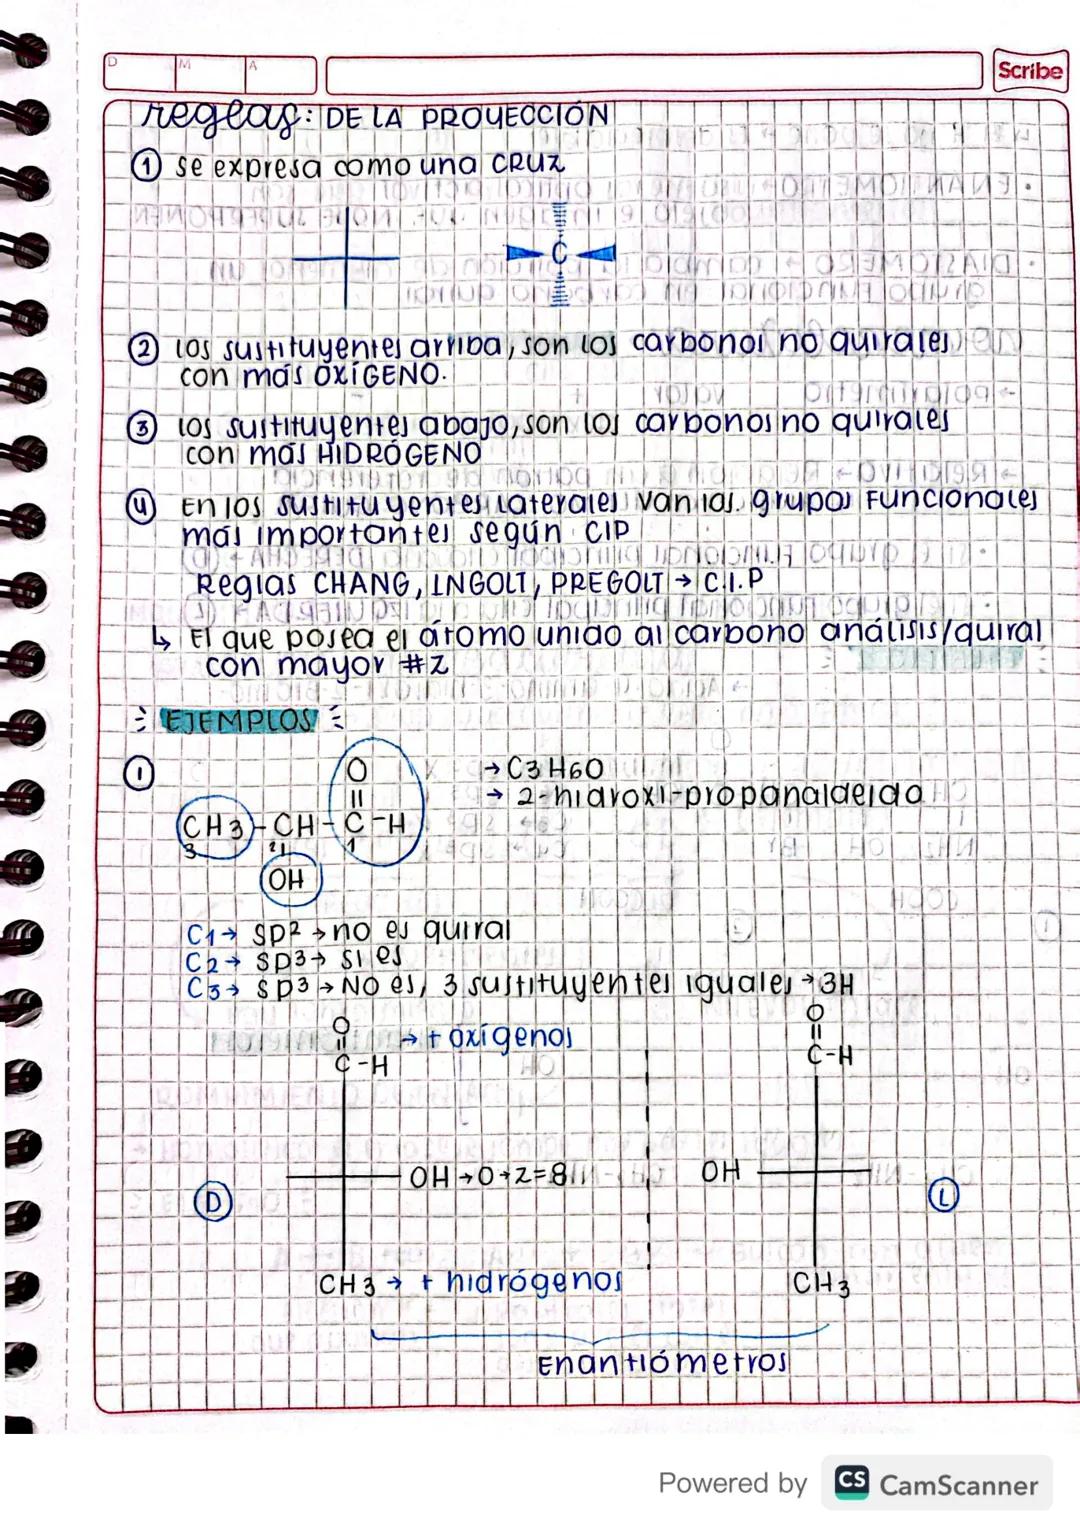 D M A
Scribe
reglas: DE LA PROYECCIÓN
① se expresa como una CRUZ
C
② los sustituyentes arriba, son los carbonos no quirales
con más OXÍGENO.
③ los sustituyentes abajo, son los carbonos no quirales
con más HIDRÓGENO
④ En los sustituyentes laterales van las grupos Funcionales
más importantes según CIP
Reglas CHANG, INGOLT, PREGOLT → C.I.P
↳ El que posea el átomo unido al carbono análisis/quiral
con mayor #Z
EJEMPLOS
① O → C3H6O
|| → 2-hidroxi-propanaldeido
CH3-CH-C-H
3 2 1
OH
C1→ sp2 → no es quiral
C2→ sp3→ sí es
C3→ sp3 → No es, 3 sustituyentes iguales → 3H
O → + oxígenos O
|| ||
C-H C-H
OH → O → Z=8 OH
D L
CH3 → + hidrógenos CH3
Enantiómetros
Powered by CS CamScanner